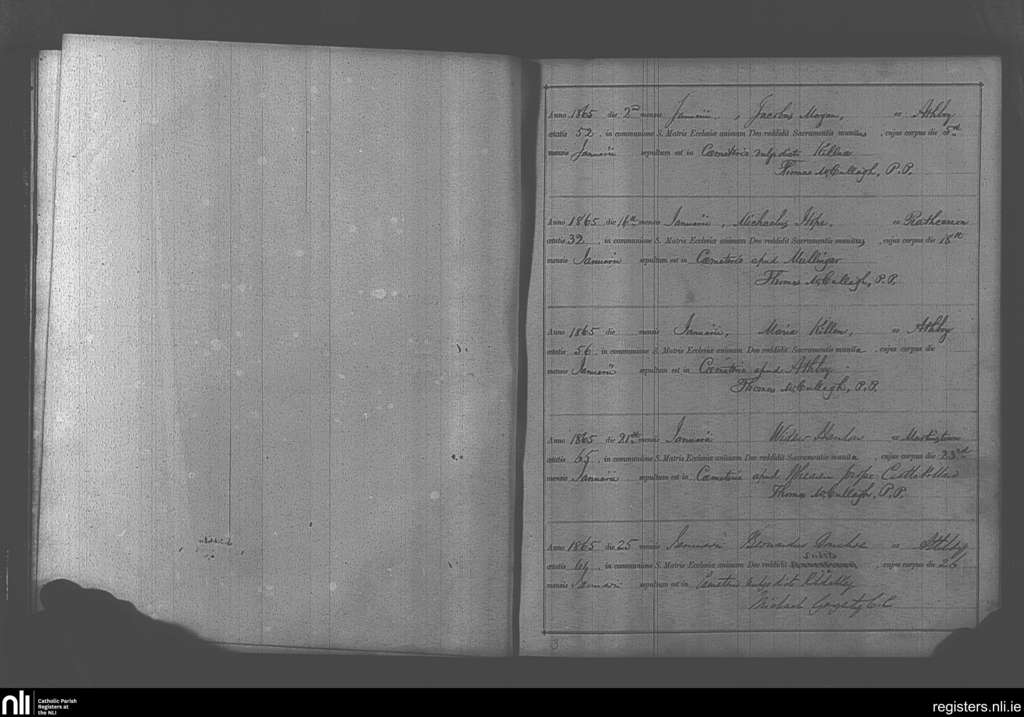 Anno 1865 die 2nd mensis Januarii, Jacobus Mogan, ex Athboy
ætatis 52, in communione S. Matris Ecclesiæ animam Deo reddidit Sacramentis munitus, cujus corpus die 5th
mensis Januarii sepultum est in Cæmeterio vulgo dicto Killua
Thomas McCullagh, P.P.
Anno 1865 die 16th mensis Januarii, Michaelus Hope, ex
ætatis 32, in communione S. Matris Ecclesiæ animam Deo reddidit Sacramentis munitus, cujus corpus die 18th
mensis Januarii sepultum est in Cæmeterio apud Mullingar
Thomas McCullagh, P.P.
Anno 1865 die mensis Januarii, Maria Killen, ex Athboy
ætatis 56, in communione S. Matris Ecclesiæ animam Deo reddidit Sacramentis munita, cujus corpus die
mensis Januarii sepultum est in Cæmeterio apud Athboy
Thomas McCullagh, P.P.
Anno 1865 die 21st mensis Januarii Widow Hanlon ex Martinstown
ætatis 65, in communione S. Matris Ecclesiæ animam Deo reddidit Sacramentis munita, cujus corpus die 23rd
mensis Januarii sepultum est in Cæmeterio apud prope Castlepollard
Thomas McCullagh, P.P.
Anno 1865 die 25 mensis Januarii Bernardus ex Athboy
ætatis 64, in communione S. Matris Ecclesiæ animam Deo reddidit, cujus corpus die 26
mensis Januarii sepultum est in Cæmeterio vulgo dict
Michael C.C.
nli
Catholic Parish
Registers at
the NLI
registers.nli.ie